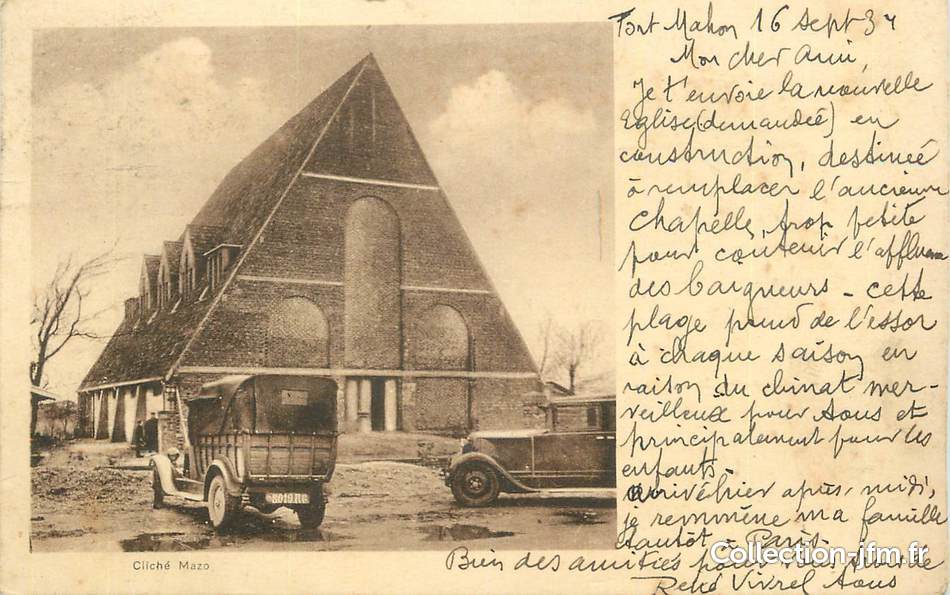 Fort Mahon 16 Sept 34
Mon cher Ami,
Je t'envoie la nouvelle
Eglise (demandée) en
construction, destinée
à remplacer l'ancienne
Chapelle, trop petite
pour contenir l'affluence
des baigneurs - cette
plage prend de l'essor
à chaque saison en
raison du climat mer-
veilleux pour tous et
principalement pour les
enfants -
Arrivé hier après-midi,
je remmène ma famille
tantôt - Paris -
Bien des amitiés pour
René Vivrel tous
8019 RE
Cliché Mazo
Collection-jfm.fr